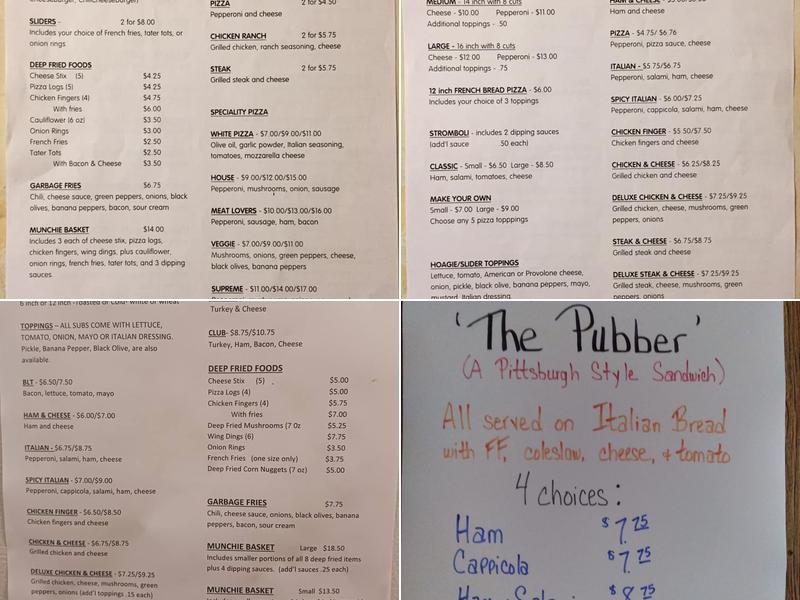 SLIDERS - 2 for $8.00
Includes your choice of French fries, tater tots, or
onion rings
DEEP FRIED FOODS
Cheese Stix (5) $4.25
Pizza Logs (5) $4.25
Chicken Fingers (4) $4.75
With fries $6.00
Cauliflower (6 oz) $3.50
Onion Rings $3.00
French Fries $2.50
Tater Tots $2.50
With Bacon & Cheese $3.50
GARBAGE FRIES $6.75
Chili, cheese sauce, green peppers, onions, black
olives, banana peppers, bacon, sour cream
MUNCHIE BASKET $14.00
Includes 3 each of cheese stix, pizza logs,
chicken fingers, wing dings, plus cauliflower,
onion rings, french fries, tater tots, and 3 dipping
sauces
PIZZA 2 for $4.50
Pepperoni and cheese
CHICKEN RANCH 2 for $5.75
Grilled chicken, ranch seasoning, cheese
STEAK 2 for $5.75
Grilled steak and cheese
SPECIALITY PIZZA
WHITE PIZZA - $7.00/$9 00/$11.00
Olive oil, garlic powder, Italian seasoning,
tomatoes, mozzarella cheese
HOUSE - $9.00/$12.00/$15.00
Pepperoni, mushrooms, onion, sausage
MEAT LOVERS - $10.00/$13.00/$16.00
Pepperoni, sausage, ham, bacon
VEGGIE - $7.00/$9.00/$11.00
Mushrooms, onions, green peppers, cheese,
black olives, banana peppers
SUPREME - $11.00/$14.00/$17.00
MEDIUM - 14 inch with 8 cuts
Cheese - $10.00 Pepperoni - $11.00
Additional toppings - .50
LARGE - 16 inch with 8 cuts
Cheese - $12.00 Pepperoni - $13.00
Additional toppings - .75
12 inch FRENCH BREAD PIZZA - $6.00
Includes your choice of 3 toppings
STROMBOLI - includes 2 dipping sauces
(add'l sauce .50 each)
CLASSIC - Small - $6.50 Large - $8.50
Ham, salami, tomatoes, cheese
MAKE YOUR OWN
Small - $7.00 Large - $9.00
Choose any 5 pizza topppings
HOAGIE/SLIDER TOPPINGS
Lettuce, tomato, American or Provolone cheese,
onion, pickle, black olive, banana peppers, mayo,
mustard, Italian dressing
HAM & CHEESE
Ham and cheese
PIZZA - $4.75/ $6.76
Pepperoni, pizza sauce, cheese
ITALIAN - $5.75/$6.75
Pepperoni, salami, ham, cheese
SPICY ITALIAN - $6.00/$7.25
Pepperoni, cappicola, salami, ham, cheese
CHICKEN FINGER - $5.50/$7.50
Chicken fingers and cheese
CHICKEN & CHEESE - $6.25/$8.25
Grilled chicken and cheese
DELUXE CHICKEN & CHEESE - $7.25/$9.25
Grilled chicken, cheese, mushrooms, green
peppers, onions
STEAK & CHEESE - $6.75/$8.75
Grilled steak and cheese
DELUXE STEAK & CHEESE - $7.25/$9.25
Grilled steak, cheese, mushrooms, green
peppers, onions
6 inch or 12 inch - roasted or cold- white or wheat
TOPPINGS – ALL SUBS COME WITH LETTUCE,
TOMATO, ONION, MAYO OR ITALIAN DRESSING.
Pickle, Banana Pepper, Black Olive, are also
available.
BLT - $6.50/7.50
Bacon, lettuce, tomato, mayo
HAM & CHEESE - $6.00/$7.00
Ham and cheese
ITALIAN - $6.75/$8.75
Pepperoni, salami, ham, cheese
SPICY ITALIAN - $7.00/$9.00
Pepperoni, cappicola, salami, ham, cheese
CHICKEN FINGER - $6.50/$8.50
Chicken fingers and cheese
CHICKEN & CHEESE - $6.75/$8.75
Grilled chicken and cheese
DELUXE CHICKEN & CHEESE - $7.25/$9.25
Grilled chicken, cheese, mushrooms, green
peppers, onions (add'l toppings .15 each)
Turkey & Cheese
CLUB- $8.75/$10.75
Turkey, Ham, Bacon, Cheese
DEEP FRIED FOODS
Cheese Stix (5) $5.00
Pizza Logs (4) $5.00
Chicken Fingers (4) $5.75
With fries $7.00
Deep Fried Mushrooms (7 0z $5.25
Wing Dings (6) $7.75
Onion Rings $3.50
French Fries (one size only) $3.75
Deep Fried Corn Nuggets (7 oz) $5.00
GARBAGE FRIES $7.75
Chili, cheese sauce, onions, black olives, banana
peppers, bacon, sour cream
MUNCHIE BASKET Large $18.50
Includes smaller portions of all 8 deep fried items
plus 4 dipping sauces. (add'l sauces .25 each)
MUNCHIE BASKET Small $13.50
'The Pubber'
(A Pittsburgh Style Sandwich)
All served on Italian Bread
with FF, coleslaw, cheese, + tomato
4 choices:
Ham $7.75
Cappicola $7.75
$8.75